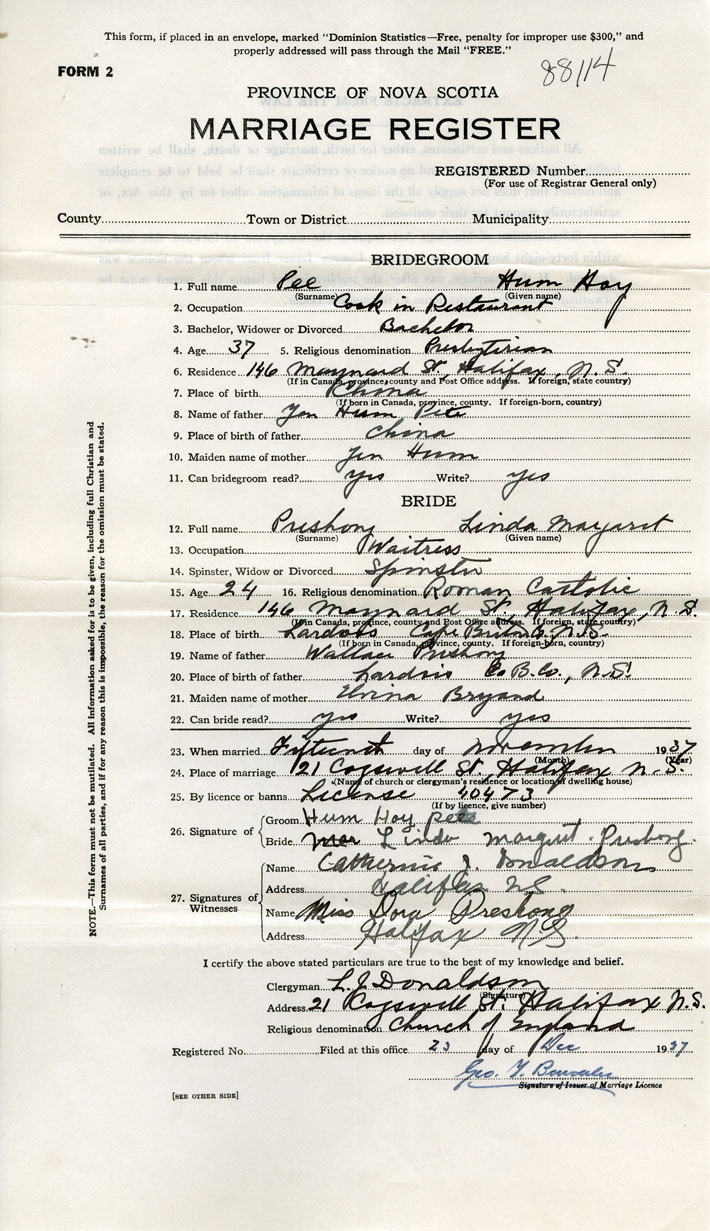 This form, if placed in an envelope, marked "Dominion Statistics—Free, penalty for improper use $300," and
properly addressed will pass through the Mail "FREE."
FORM 2
88114
PROVINCE OF NOVA SCOTIA
MARRIAGE REGISTER
REGISTERED Number
(For use of Registrar General only)
County Town or District Municipality
BRIDEGROOM
1. Full name Pee Hum Hoy
(Surname) (Given name)
2. Occupation Cook in Restaurant
3. Bachelor, Widower or Divorced Bachelor
4. Age 37 5. Religious denomination Presbyterian
6. Residence 146 Maynard St, Halifax, N.S.
(If in Canada, province, county and Post Office address. If foreign, state country)
7. Place of birth China
(If born in Canada, province, county. If foreign-born, country)
8. Name of father Yen Hum Pete
9. Place of birth of father China
10. Maiden name of mother Jen Hum
11. Can bridegroom read? yes Write? yes
BRIDE
12. Full name Preshong Linda Margaret
(Surname) (Given name)
13. Occupation Waitress
14. Spinster, Widow or Divorced Spinster
15. Age 24 16. Religious denomination Roman Catholic
17. Residence 146 Maynard St, Halifax, N.S.
(If in Canada, province, county and Post Office address. If foreign, state country)
18. Place of birth Cape Breton N.S.
(If born in Canada, province, county. If foreign-born, country)
19. Name of father Wallace Preshong
20. Place of birth of father C.B.Co., N.S.
21. Maiden name of mother Bryand
22. Can bride read? yes Write? yes
23. When married Fifteenth day of November 1937
(Month) (Year)
24. Place of marriage 21 Cogswell St, Halifax N.S.
(Name of church or clergyman's residence or location of dwelling house)
25. By licence or banns License 40473
(If by licence, give number)
26. Signature of
Groom Hum Hoy pete
Bride Linda Margret Preshong
27. Signatures of Witnesses
Name Catherine J. Donaldson
Address Halifax N.S.
Name Miss Dora Preshong
Address Halfax N.S.
I certify the above stated particulars are true to the best of my knowledge and belief.
Clergyman L. J. Donaldson
(Signature)
Address 21 Cogswell St. Halifax N.S.
Religious denomination Church of England
Registered No. Filed at this office 23 day of Dec 1937
Geo. 
Signature of Issuer of Marriage Licence
[SEE OTHER SIDE]
NOTE.—This form must not be mutilated. All information asked for is to be given, including full Christian and
Surnames of all parties, and if for any reason this is impossible, the reason for the omission must be stated.